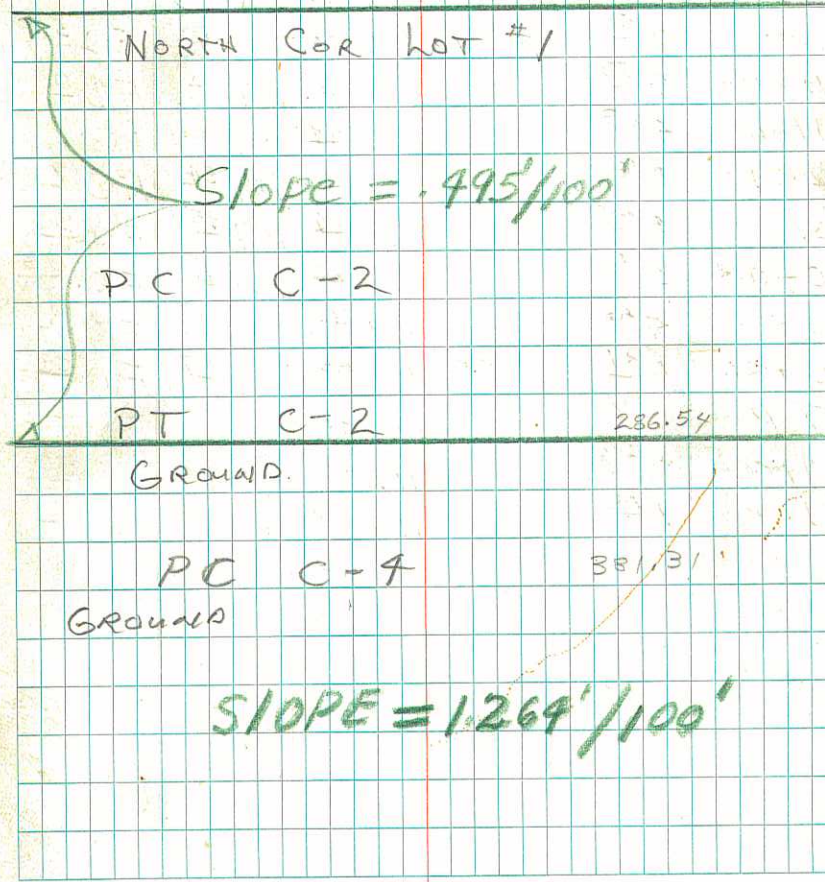 NORTH COR LOT #1
Slope = .495'/100'
PC C-2
PT C-2 286.54
GROUND.
PC C-4 381.31
GROUND
SLOPE = 1.264'/100'